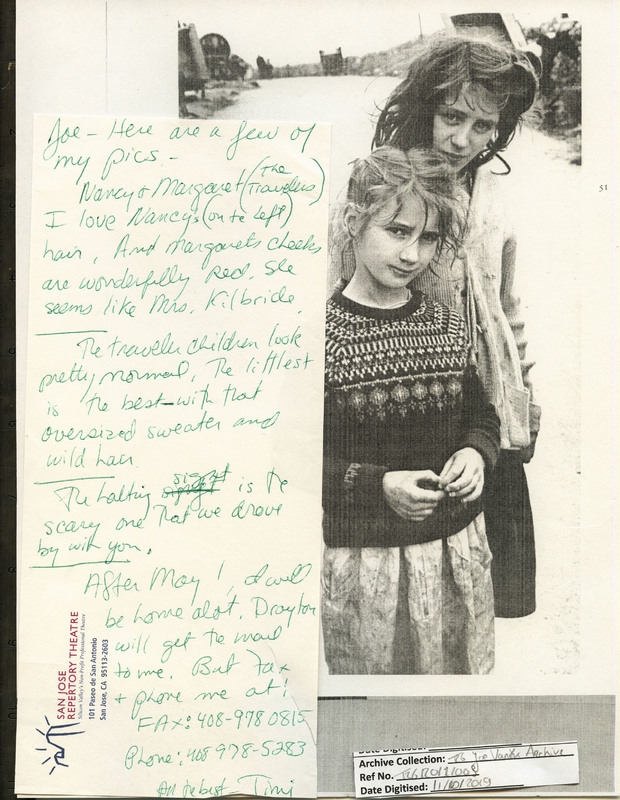 Joe - Here are a few of
my pics -
Nancy + Margaret (The Travelers)
I love Nancys (on te left)
hair, And Margarets cheeks
are wonderfully red. She
seems like Mrs. Kilbride.
The traveler children look
pretty normal, The littlest
is the best - with that
oversized sweater and
wild hair
The halting signet is the
scary one that we drove
by with you.
After May 1, I will
be home alot. Drayton
will get te mail
to me. But fax
+ phone me at!
FAX: 408-978 0815
Phone: 408 978-5283
All te best - Timi
SAN JOSE
REPERTORY THEATRE
Silicon Valley's Non-Profit Professional Theatre
101 Paseo de San Antonio
San Jose, CA 95113-2603
51
Date Digitised:
Archive Collection: The Joe Vanek Archive
Ref No.
Date Digitised: 11/10/2019